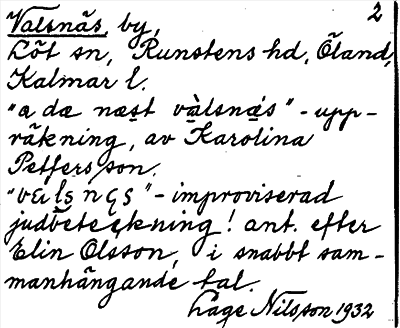 2
Valsnäs, by,
Löt sn, Runstens hd, Öland,
Kalmar l.
"a dæ næst vàlsnás" - upp-
räkning, av Karolina
Petersson.
"vɛılşnçş" - improviserad
ljudbeteckning! ant. efter
Elin Olsson, i snabbt sam-
manhängande tal.
Låge Nilsson 1932